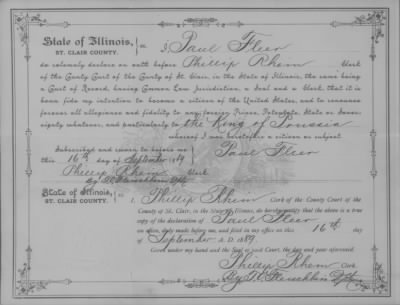 State of Illinois, ss.
ST. CLAIR COUNTY.
I, Paul Fleer
do solemnly declare on oath before Phillip Rhein Clerk
of the County Court of the County of St. Clair, in the State of Illinois, the same being
a Court of Record, having Common Law Jurisdiction, a Seal and a Clerk, that it is
bona fide my intention to become a citizen of the United States, and to renounce
forever all allegiance and fidelity to any foreign Prince, Potentate, State or Sover-
eignty whatever, and particularly to the King of Prussia
whereof I was heretofore a citizen or subject.
Subscribed and sworn to before me
this 16th day of September 1889
Paul Fleer
Phillip Rhein Clerk
By
State of Illinois, ss.
ST. CLAIR COUNTY.
I, Phillip Rhein Clerk of the County Court of the
County of St. Clair, in the State of Illinois, do hereby certify that the above is a true
copy of the declaration of Paul Fleer
on oath, duly made before me, and filed in my office on this 16th day
of September A. D. 1889.
Given under my hand and the Seal of said Court, the day and year aforesaid.
Phillip Rhein Clerk
By